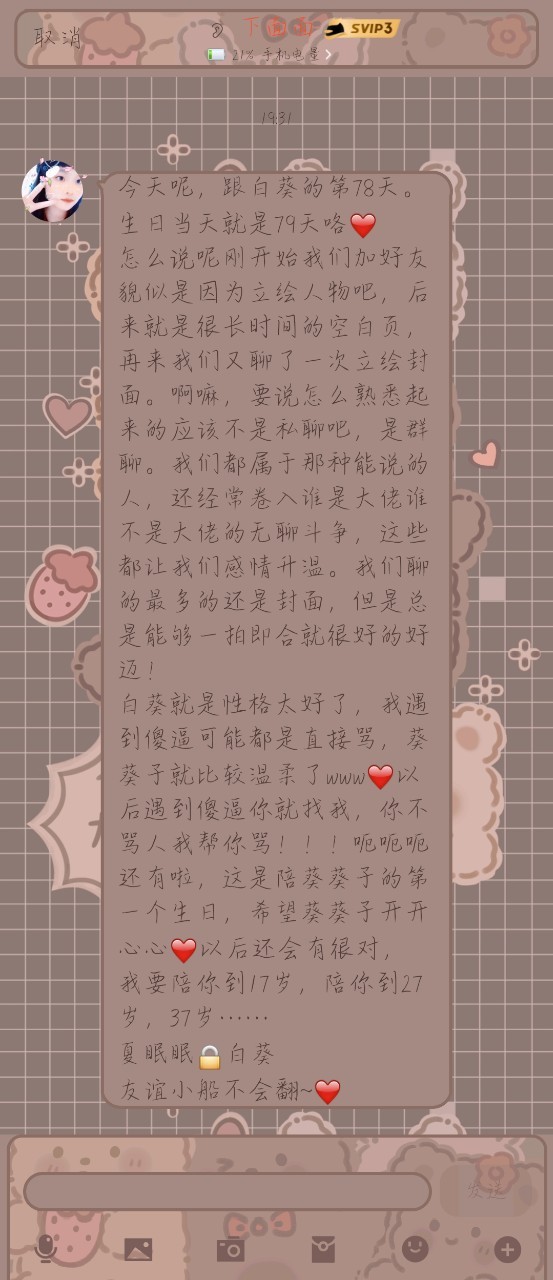 取消
SVIP3
21% 手机电量
19:31
今天呢，跟白葵的第78天。
生日当天就是79天咯❤️
怎么说呢刚开始我们加好友
貌似是因为立绘人物吧，后
来就是很长时间的空白页，
再来我们又聊了一次立绘封
面。啊嘛，要说怎么熟悉起
来的应该不是私聊吧，是群
聊。我们都属于那种能说的
人，还经常卷入谁是大佬谁
不是大佬的无聊斗争，这些
都让我们感情升温。我们聊
的最多的还是封面，但是总
是能够一拍即合就很好的好
迈！
白葵就是性格太好了，我遇
到傻逼可能都是直接骂，葵
葵子就比较温柔了www❤️以
后遇到傻逼你就找我，你不
骂人我帮你骂！！！呃呃呃
还有啦，这是陪葵葵子的第
一个生日，希望葵葵子开开
心心❤️以后还会有很对，
我要陪你到17岁，陪你到27
岁，37岁……
夏眠眠🔒白葵
友谊小船不会翻~❤️
发送